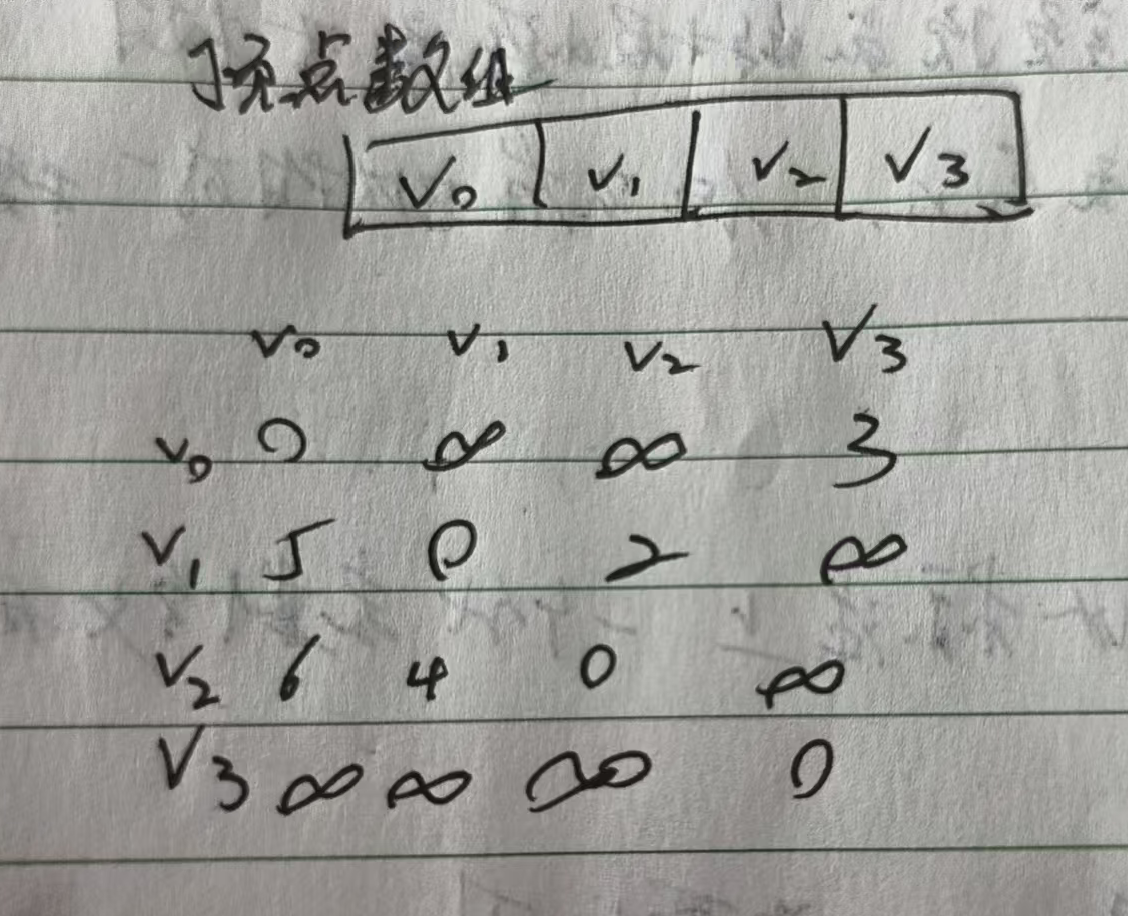 顶点数组
V₀ V₁ V₂ V₃
V₀ V₁ V₂ V₃
V₀ 0 ∞ ∞ 3
V₁ 5 0 2 ∞
V₂ 6 4 0 ∞
V₃ ∞ ∞ ∞ 0